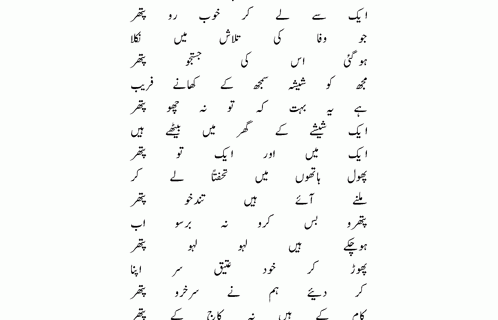 ایک سے لے کر خوب رو پتھر
جو وفا کی تلاش میں نکلا
ہو گئی اس کی جستجو پتھر
مجھ کو شیشہ سمجھ کے کھانے فریب
ہے یہ بہت کہ تو نہ چھو پتھر
ایک شیشے کے گھر میں بیٹھے ہیں
ایک میں اور ایک تو پتھر
پھول ہاتھوں میں تحفتاً لے کر
ملنے آئے ہیں تندخو پتھر
پتھرو بس کرو نہ برسو اب
ہوچکے ہیں لہو لہو پتھر
پھوڑ کر خود عتیق سر اپنا
کر دیئے ہم نے سرخرو پتھر
کام کے ہیں نہ کاج کے پتھر